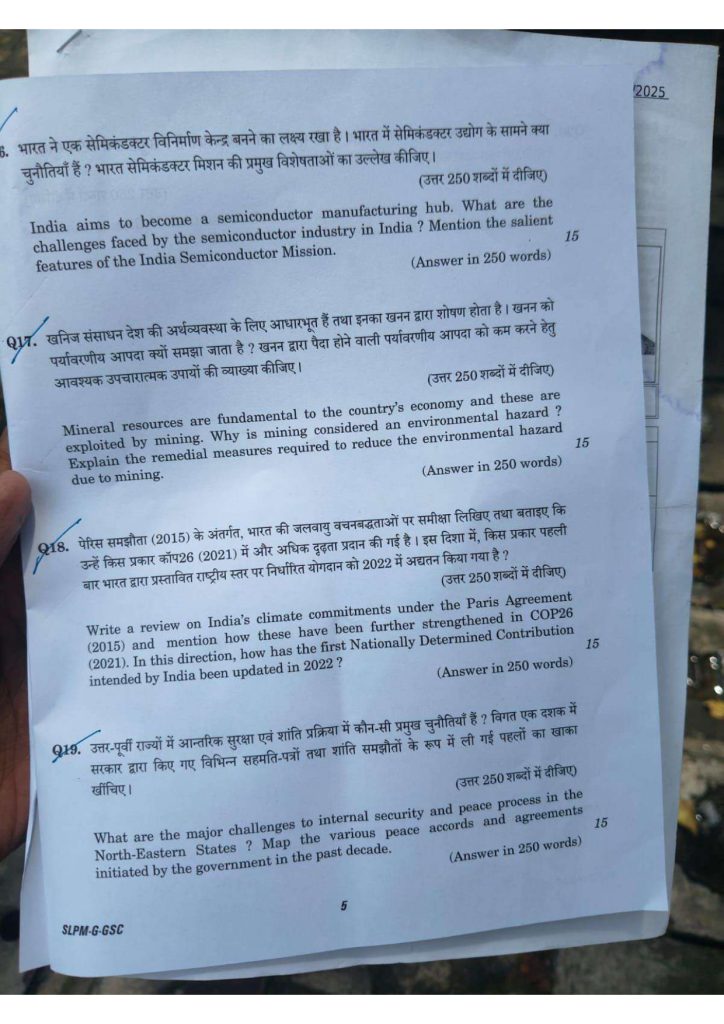 /2025
6. भारत ने एक सेमिकंडक्टर विनिर्माण केन्द्र बनने का लक्ष्य रखा है । भारत में सेमिकंडक्टर उद्योग के सामने क्या
चुनौतियाँ हैं ? भारत सेमिकंडक्टर मिशन की प्रमुख विशेषताओं का उल्लेख कीजिए ।
(उत्तर 250 शब्दों में दीजिए)
India aims to become a semiconductor manufacturing hub. What are the
challenges faced by the semiconductor industry in India ? Mention the salient
features of the India Semiconductor Mission.
(Answer in 250 words) 15
Q17. खनिज संसाधन देश की अर्थव्यवस्था के लिए आधारभूत हैं तथा इनका खनन द्वारा शोषण होता है । खनन को
पर्यावरणीय आपदा क्यों समझा जाता है ? खनन द्वारा पैदा होने वाली पर्यावरणीय आपदा को कम करने हेतु
आवश्यक उपचारात्मक उपायों की व्याख्या कीजिए ।
(उत्तर 250 शब्दों में दीजिए)
Mineral resources are fundamental to the country's economy and these are
exploited by mining. Why is mining considered an environmental hazard ?
Explain the remedial measures required to reduce the environmental hazard
due to mining.
(Answer in 250 words) 15
Q18. पेरिस समझौता (2015) के अंतर्गत, भारत की जलवायु वचनबद्धताओं पर समीक्षा लिखिए तथा बताइए कि
उन्हें किस प्रकार कॉप26 (2021) में और अधिक दृढ़ता प्रदान की गई है । इस दिशा में, किस प्रकार पहली
बार भारत द्वारा प्रस्तावित राष्ट्रीय स्तर पर निर्धारित योगदान को 2022 में अद्यतन किया गया है ?
(उत्तर 250 शब्दों में दीजिए)
Write a review on India's climate commitments under the Paris Agreement
(2015) and mention how these have been further strengthened in COP26
(2021). In this direction, how has the first Nationally Determined Contribution
intended by India been updated in 2022 ?
(Answer in 250 words) 15
Q19. उत्तर-पूर्वी राज्यों में आन्तरिक सुरक्षा एवं शांति प्रक्रिया में कौन-सी प्रमुख चुनौतियाँ हैं ? विगत एक दशक में
सरकार द्वारा किए गए विभिन्न सहमति-पत्रों तथा शांति समझौतों के रूप में ली गई पहलों का खाका
खींचिए ।
(उत्तर 250 शब्दों में दीजिए)
What are the major challenges to internal security and peace process in the
North-Eastern States ? Map the various peace accords and agreements
initiated by the government in the past decade.
(Answer in 250 words) 15
5
SLPM-G-GSC